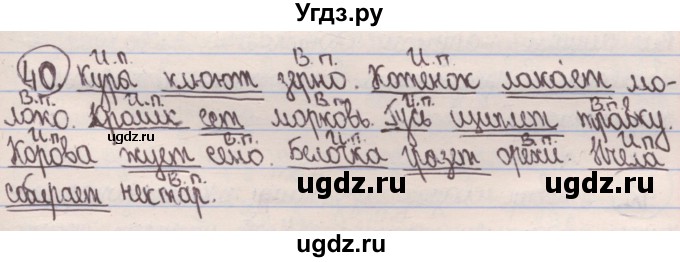 Угдз.ру
И.п. В.п. И.п.
40. Куры клюют зерно. Котенок лакает мо-
В.п. И.п. В.п. И.п. В.п.
локо. Кролик ест морковь. Гусь щиплет травку.
И.п. В.п. И.п. В.п. И.п.
Корова жует сено. Белочка грызет орехи. Пчела
В.п.
собирает нектар.
©gdz.ru
ugdz.ru
ugdz.ru
ugdz.ru